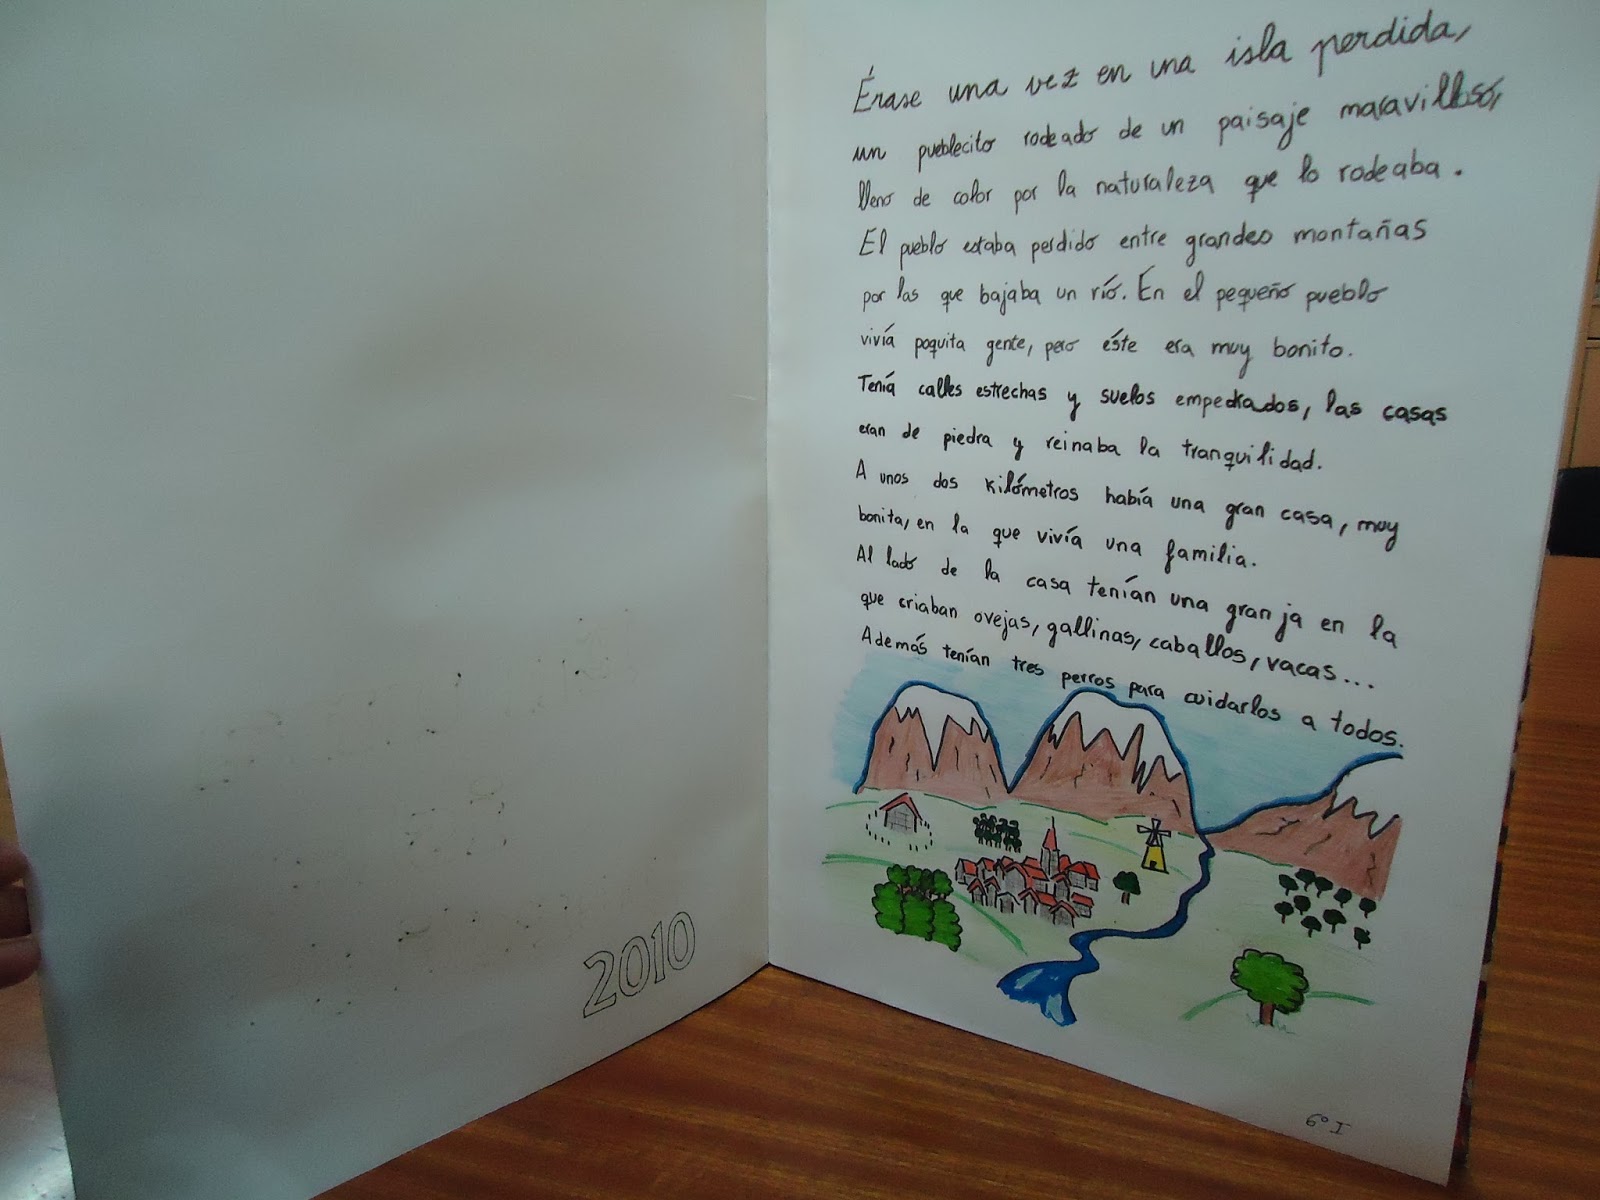 Érase una vez en una isla perdida,
un pueblecito rodeado de un paisaje maravilloso,
lleno de color por la naturaleza que lo rodeaba.
El pueblo estaba perdido entre grandes montañas
por las que bajaba un río. En el pequeño pueblo
vivía poquita gente, pero éste era muy bonito.
Tenía calles estrechas y suelos empedrados, las casas
eran de piedra y reinaba la tranquilidad.
A unos dos kilómetros había una gran casa, muy
bonita, en la que vivía una familia.
Al lado de la casa tenían una granja en la
que criaban ovejas, gallinas, caballos, vacas...
Además tenían tres perros para cuidarlos a todos.
2010
6º I